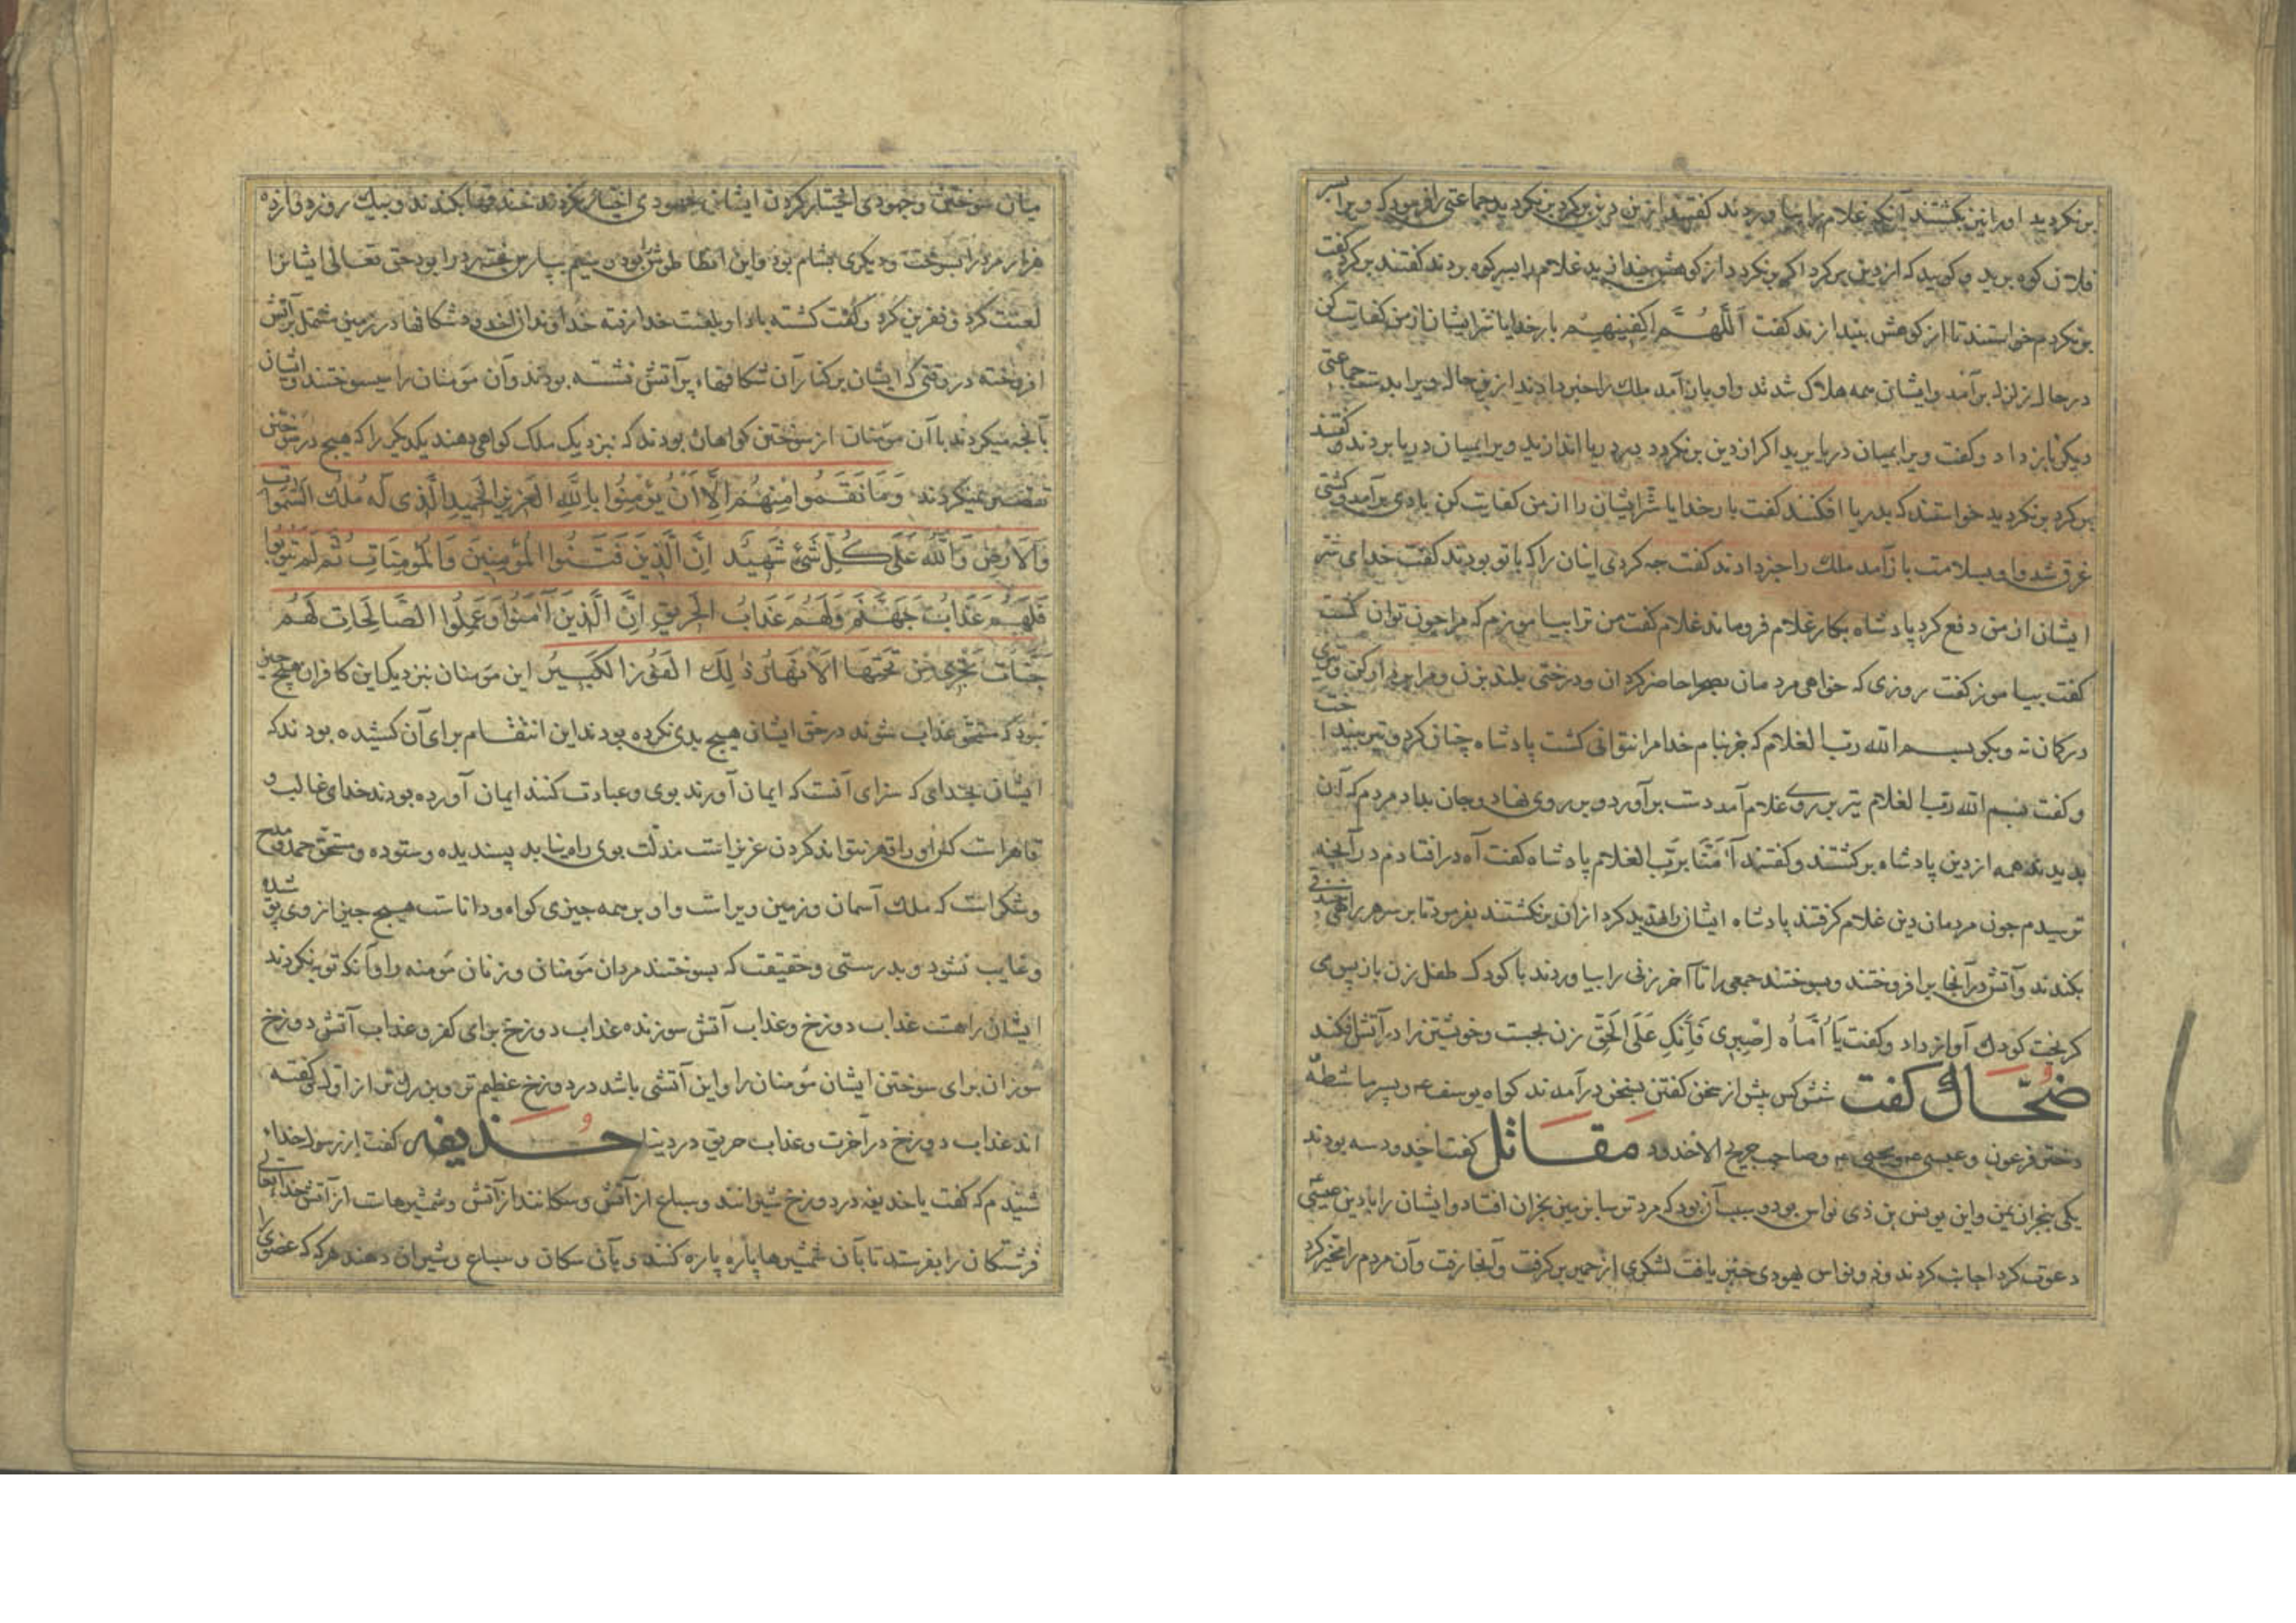 برنکردید اورا نیز بکشتند آنکه غلام را بیاوردند کفتند ازین دین برکرد برنکردید جماعتی را فرمود که ویرا بسر
فلان کوه برید و کویید که از دین برکرد اکر برنکردد از کوهش بیندازید غلام را بسر کوه بردند کفتند برکرد کفت
برنکردم خواستند تا از کوهش بیندازند کفت اَللّٰهُمَّ اکفِنیهِم بار خدایا شر ایشان از من کفایت کن
در حال زلزله برآمد و ایشان همه هلاک شدند و او بازآمد ملک را خبر دادند ازین حال ویرا بدست جماعتی
دیکر باز داد و کفت ویرا بمیان دریا برید اکر از دین برنکردد بدریا اندازید ویرا بمیان دریا بردند و کفتند
برکرد برنکردید خواستند که بدریا افکنند کفت بار خدایا شر ایشان را از من کفایت کن بادی برآمد و کشتی
غرق شد و او بسلامت بازآمد ملک را خبر دادند کفت چه کردی اینان را که با تو بودند کفت خدای شر
ایشان از من دفع کرد پادشاه بکار غلام فروماند غلام کفت من ترا بیاموزم که مرا چون توان کشت
کفت بیاموز کفت روزی که خواهی مردمان بصحرا حاضر کردان و درختی بلند بزن و مرا بردار کن و تیری
در کمان نه و بکو بسم الله رب الغلام که جز بنام خدا مرا نتوانی کشت پادشاه چنان کرد و تیر بینداخت
و کفت بسم الله رب الغلام تیر بر روی غلام آمد دست برآورد و بر روی نهاد و جان بداد مردم که آن
بدیدند همه از دین پادشاه برکشتند و کفتند آمَنّا بِرَبِّ الغلام پادشاه کفت آه درافتادم در آنچه
ترسیدم چون مردمان دین غلام کرفتند پادشاه ایشان را تهدید کرد ازان برنکشتند بفرمود تا بر سر هر راهی خندقی
بکندند و آتش در آنجا برافروختند و بسوختند جمعی را تا آخر زنی را بیاوردند با کودک طفل زن باز پس می
کریخت کودک آواز داد و کفت یا اُمّاه اِصبِری فَاِنَّکِ عَلَی الحَقِّ زن بجست و خویشتن را در آتش افکند
ضحّاک کفت شش کس پیش از سخن کفتن بسخن درآمدند کواه یوسف ع و پسر ماشطهٔ
دختر فرعون و عیسی ع و یحیی ع و صاحب جریج الاخدود مقاتل کفت اخدود سه بودند
یکی بنجران یمن و این یوسف بن ذی نواس بود و سبب آن بود که مرد ترسا بزمین نجران افتاد و ایشان را با دین عیسی
دعوت کرد اجابت کردند و ذونواس یهودی خبر یافت لشکری از حمیر برکرفت و آنجا رفت و آن مردم را مخیر کرد
میان سوختن و جهودی اختیار کردن ایشان جهودی اختیار نکردند خندقها بکندند و بیک روز دوازده
هزار مرد را بسوخت و دیکری بشام بود و این انطیا طوش بود سیم بپارس بخت نصر را بود حق تعالی ایشانرا
لعنت کرد و نفرین کرد و کفت کشته باد او بلعنت خدا رفته خداوندان اخدود شکافها در زمین مشتمل بر آتش
افروخته در وقتی که ایشان بر کنار آن شکافهاء پر آتش نشسته بودند و آن مؤمنان را میسوختند و ایشان
بآنچه میکردند با آن مؤمنان از سوختن کواهان بودند که نزدیک ملک کواهی دهند یکدیکر را که هیچ در سوختن
تقصیر نمیکردند وَمَا نَقَمُوا مِنْهُمْ اِلَّا اَنْ یُؤْمِنُوا بِاللّٰهِ الْعَزِیزِ الْحَمِیدِ الَّذِی لَهُ مُلْكُ السَّمٰوَاتِ
وَالْاَرْضِ وَاللّٰهُ عَلَی کُلِّ شَیْءٍ شَهِیدٌ اِنَّ الَّذِینَ فَتَنُوا الْمُؤْمِنِینَ وَالْمُؤْمِنَاتِ ثُمَّ لَمْ یَتُوبُوا
فَلَهُمْ عَذَابُ جَهَنَّمَ وَلَهُمْ عَذَابُ الْحَرِیقِ اِنَّ الَّذِینَ آمَنُوا وَعَمِلُوا الصَّالِحَاتِ لَهُمْ
جَنَّاتٌ تَجْرِی مِنْ تَحْتِهَا الْاَنْهَارُ ذٰلِكَ الْفَوْزُ الْکَبِیرُ این مؤمنان نزدیک این کافران هیچ چیز
نبود که مستحق عذاب شوند در حق ایشان هیچ بدی نکرده بودند این انتقام برای آن کشیده بودند که
ایشان بخدایی که سزای آنست که ایمان آورند بوی و عبادت کنند ایمان آورده بودند خدای غالب و
قاهراست کس او را قهر نتواند کردن عزیز است مذلت بوی راه نیابد پسندیده و ستوده و مستحق حمد و مدح
و شکر است که ملک آسمان و زمین ویراست و او بر همه چیزی کواه و داناست هیچ چیز از وی پوشیده
و غایب نشود و بدرستی و حقیقت که بسوختند مردان مؤمنان و زنان مؤمنه را و آنکه توبه نکردند
ایشان راهست عذاب دوزخ و عذاب آتش سوزنده عذاب دوزخ برای کفر و عذاب آتش دوزخ
سوزان برای سوختن ایشان مؤمنان را و این آتشی باشد در دوزخ عظیم تر و بزرک تر از اولی کفته
اند عذاب دوزخ در آخرت و عذاب حریق در دنیا حذیفه کفت از رسول خدا
شنیدم که کفت یا حذیفه در دوزخ شیرانند و سباع از آتش و سکانند از آتش و شمشیرهاست از آتش خدا تعالی
فرشتکان را بفرستد تا بآن شمشیرها پاره پاره کنند و بآن سکان و سباع و شیران دهند هرکه که عضوی را